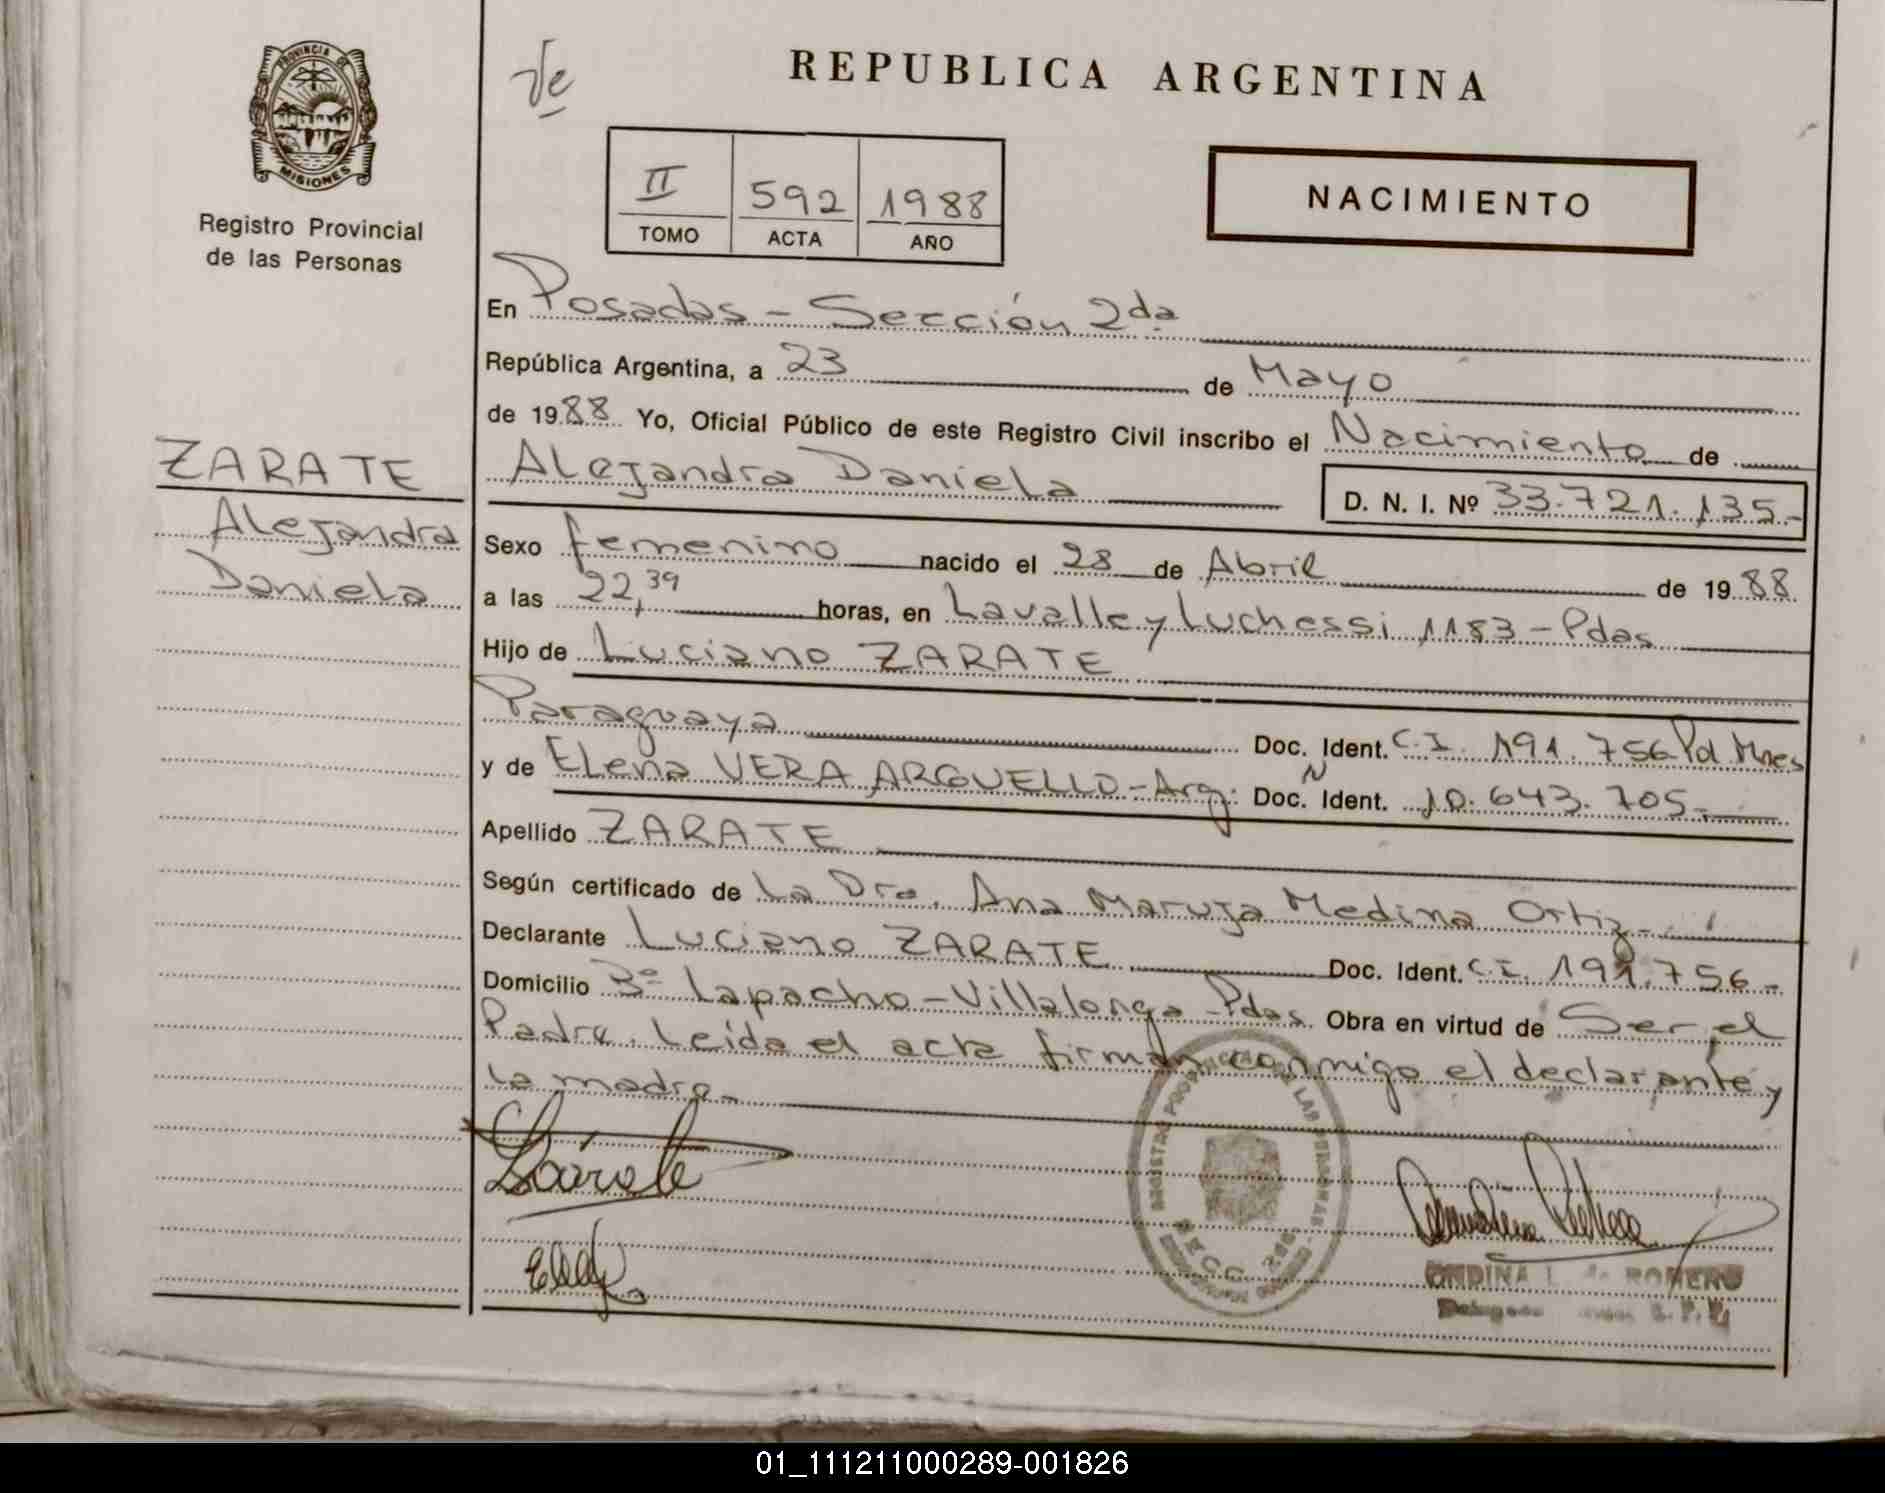 PROVINCIA DE
MISIONES
Registro Provincial
de las Personas
REPUBLICA ARGENTINA
II 592 1988
TOMO ACTA AÑO
NACIMIENTO
En Posadas - Sección 2da
República Argentina, a 23 de Mayo
de 1988 Yo, Oficial Público de este Registro Civil inscribo el Nacimiento de
Alejandra Daniela D. N. I. Nº 33.721.135.-
ZARATE
Alejandra
Daniela
Sexo femenino nacido el 28 de Abril de 1988
a las 22,39 horas, en Lavalle y Luchessi 1183 - Pdas
Hijo de Luciano ZARATE
Paraguaya Doc. Ident. C.I. 191.756 Pol. Mnes
y de Elena VERA ARGUELLO - Arg. Doc. Ident. 10.643.705.-
Apellido ZARATE
Según certificado de La Dra. Ana Maruja Medina Ortiz -
Declarante Luciano ZARATE Doc. Ident. C.I. 191.756 -
Domicilio Bº Lapacho - Villalonga - Pdas. Obra en virtud de Ser el
Padre. Leída el acta firman conmigo el declarante y
la madre.-
Zárate
REGISTRO PROVINCIAL DE LAS PERSONAS
SECC. 2da
ONDINA L. de ROMERO
01_111211000289-001826